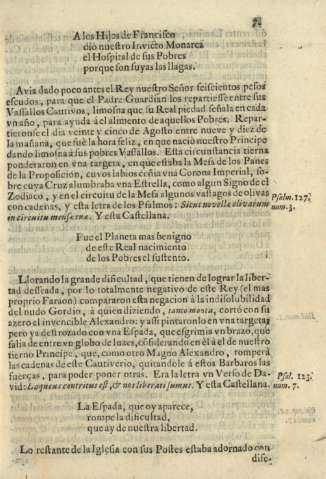 A los Hijos de Francisco
diò nuestro Invicto Monarca
el Hospital de sus Pobres
porque son suyas las llagas.
Avia dado poco antes el Rey nuestro Señor seiscientos pesos
escudos, para que el Padre Guardian los repartiesse entre sus
Vassallos Cautivos, limosna que su Real piedad señala en cada
vn año, para ayuda à el alimento de aquellos Pobres. Repar-
tieronse el dia veinte y cinco de Agosto entre nueve y diez de
la mañana, que fuè la hora feliz, en que naciò nuestro Principe
dando limosna à sus pobres Vassallos. Esta circunstancia tierna
ponderaron en vna targeta, en que estaba la Mesa de los Panes
de la Proposicion, cuyos labios ceñia vna Corona Imperial, so-
bre cuya Cruz alumbraba vna Estrella, como algun Signo de el
Zodiaco, y en el circuito de la Mesa algunos vastagos de olivas
con cadenas, y esta letra de los Psalmos: Sicut novellæ olivarum
in circuitu mensæ tuæ. Y esta Castellana.
Psalm. 127.
num. 3.
Fue el Planeta mas benigno
de este Real nacimiento
de los Pobres el sustento.
Llorando la grande dificultad, que tienen de lograr la liber-
tad desseada, por lo totalmente negativo de este Rey (el mas
proprio Faraon) compararon esta negacion à la indisolubilidad
del nudo Gordio, à quien diziendo, tanto monta, cortò con su
azero el invencible Alexandro: y assi pintaron en vna targeta,
pero ya destrozado con vna Espada, que esgrimia vn brazo, que
salia de entre vn globo de luzes, considerando en èl à el de nuestro
tierno Principe, que, como otro Magno Alexandro, romperà
las cadenas de este Cautiverio, quitandole à estos Barbaros las
fuerças, para poder poner otras. Era la letra vn Verso de Da-
vid: Laqueus contritus est, & nos liberati sumus. Y esta Castellana.
Psal. 123.
num. 7.
La Espada, que oy aparece,
rompe la dificultad,
que ay de nuestra libertad.
Lo restante de la Iglesia con sus Postes estaba adornado con
dife-